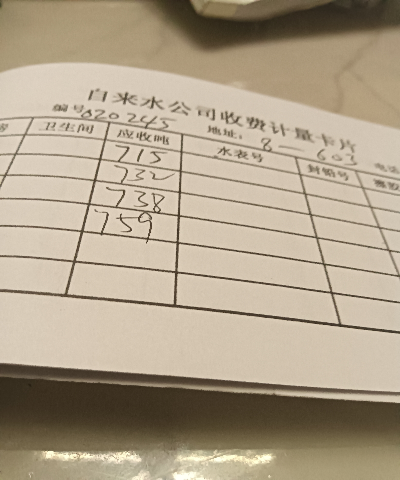 自来水公司收费计量卡片
编号 620245 地址: 8-603 电话
卫生间 应收吨 水表号 封铅号
715
732
738
759